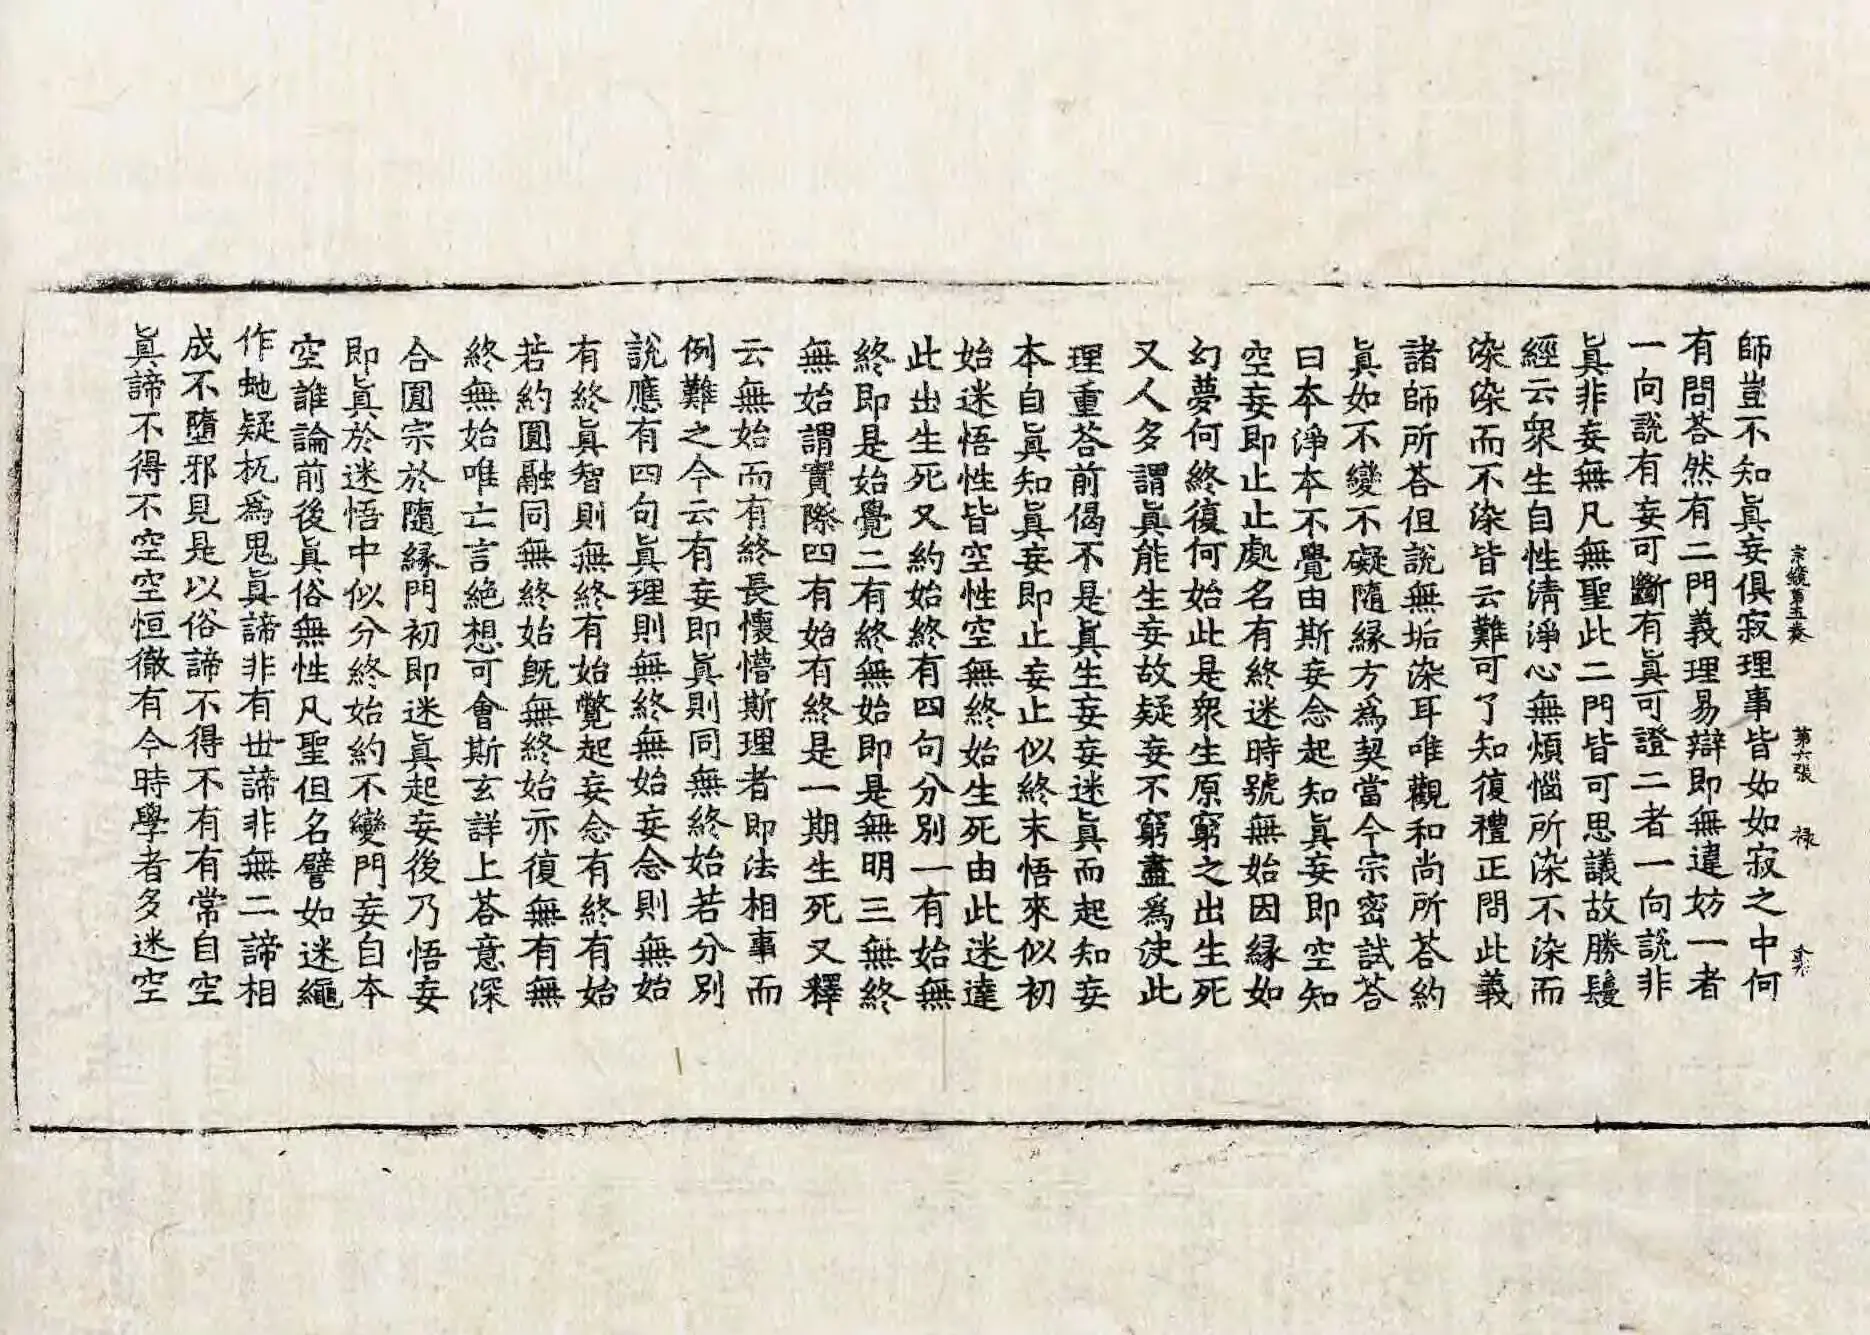 宗鏡第五卷　第六張　祿
師豈不知眞妄俱寂理事皆如如寂之中何
有問荅然有二門義理易辯即無違妨一者
一向說有妄可斷有眞可證二者一向說非
眞非妄無凡無聖此二門皆可思議故勝鬘
經云衆生自性清淨心無煩惱所染不染而
染染而不染皆云難可了知復禮正問此義
諸師所荅但說無垢染耳唯觀和尚所荅約
眞如不變不礙隨緣方爲契當今宗密試荅
曰本淨本不覺由斯妄念起知眞妄即空知
空妄即止止處名有終迷時號無始因緣如
幻夢何終復何始此是衆生原窮之出生死
又人多謂眞能生妄故疑妄不窮盡爲決此
理重荅前偈不是眞生妄妄迷眞而起知妄
本自眞知眞妄即止妄止似終末悟來似初
始迷悟性皆空性空無終始生死由此迷達
此出生死又約始終有四句分別一有始無
終即是始覺二有終無始即是無明三無終
無始謂實際四有始有終是一期生死又釋
云無始而有終長懷懵斯理者即法相事而
例難之今云有妄即眞則同無終始若分別
說應有四句眞理則無終無始妄念則無始
有終眞智則無終有始瞥起妄念有終有始
若約圓融同無終始旣無終始亦復無有無
終無始唯亡言絕想可會斯玄詳上荅意深
合圓宗於隨緣門初即迷眞起妄後乃悟妄
即眞於迷悟中似分終始約不變門妄自本
空誰論前後眞俗無性凡聖但名譬如迷繩
作虵疑杌爲鬼眞諦非有世諦非無二諦相
成不墮邪見是以俗諦不得不有有常自空
眞諦不得不空空恒徹有今時學者多迷空